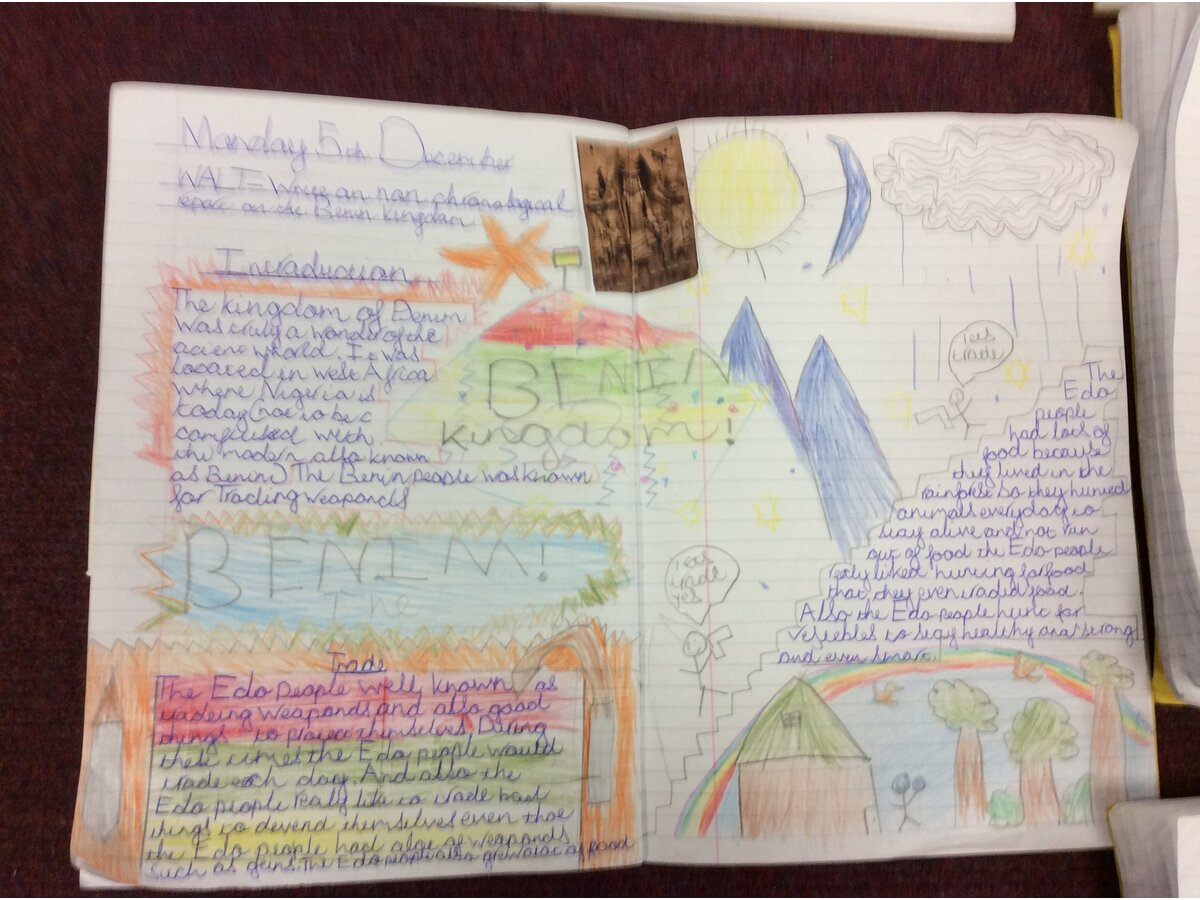 Monday 5th December
WALT= Write an non chronological
on the Benin Kingdom
Intraduction
The kingdom of Benin
was truly a wonder of the
world. It was
located in west Africa
where Nigeria is
today not to be
with
the modern also known
as Benin) The Benin people was known
for Trading weaponds
BENIN
kingdom!
BENIM!
The
Trade
The Edo people welly known as
tradeing weaponds and also good
things to protect themselves. During
these times the Edo people would
trade each day. And also the
Edo people really like to trade bad
things to devend themselves even thoe
the Edo people had alot of weaponds
such as guns. The Edo people also grew alot of food
lets
trade
The
Edo
people
had lots of
food because
they lived in the
so they hunted
animals everyday to
stay alive and not run
out of food the Edo people
really liked hunting for food
that they even traded food.
Also the Edo people hunt for
to stay healthy and strong
and even smart.
lets
trade
yes